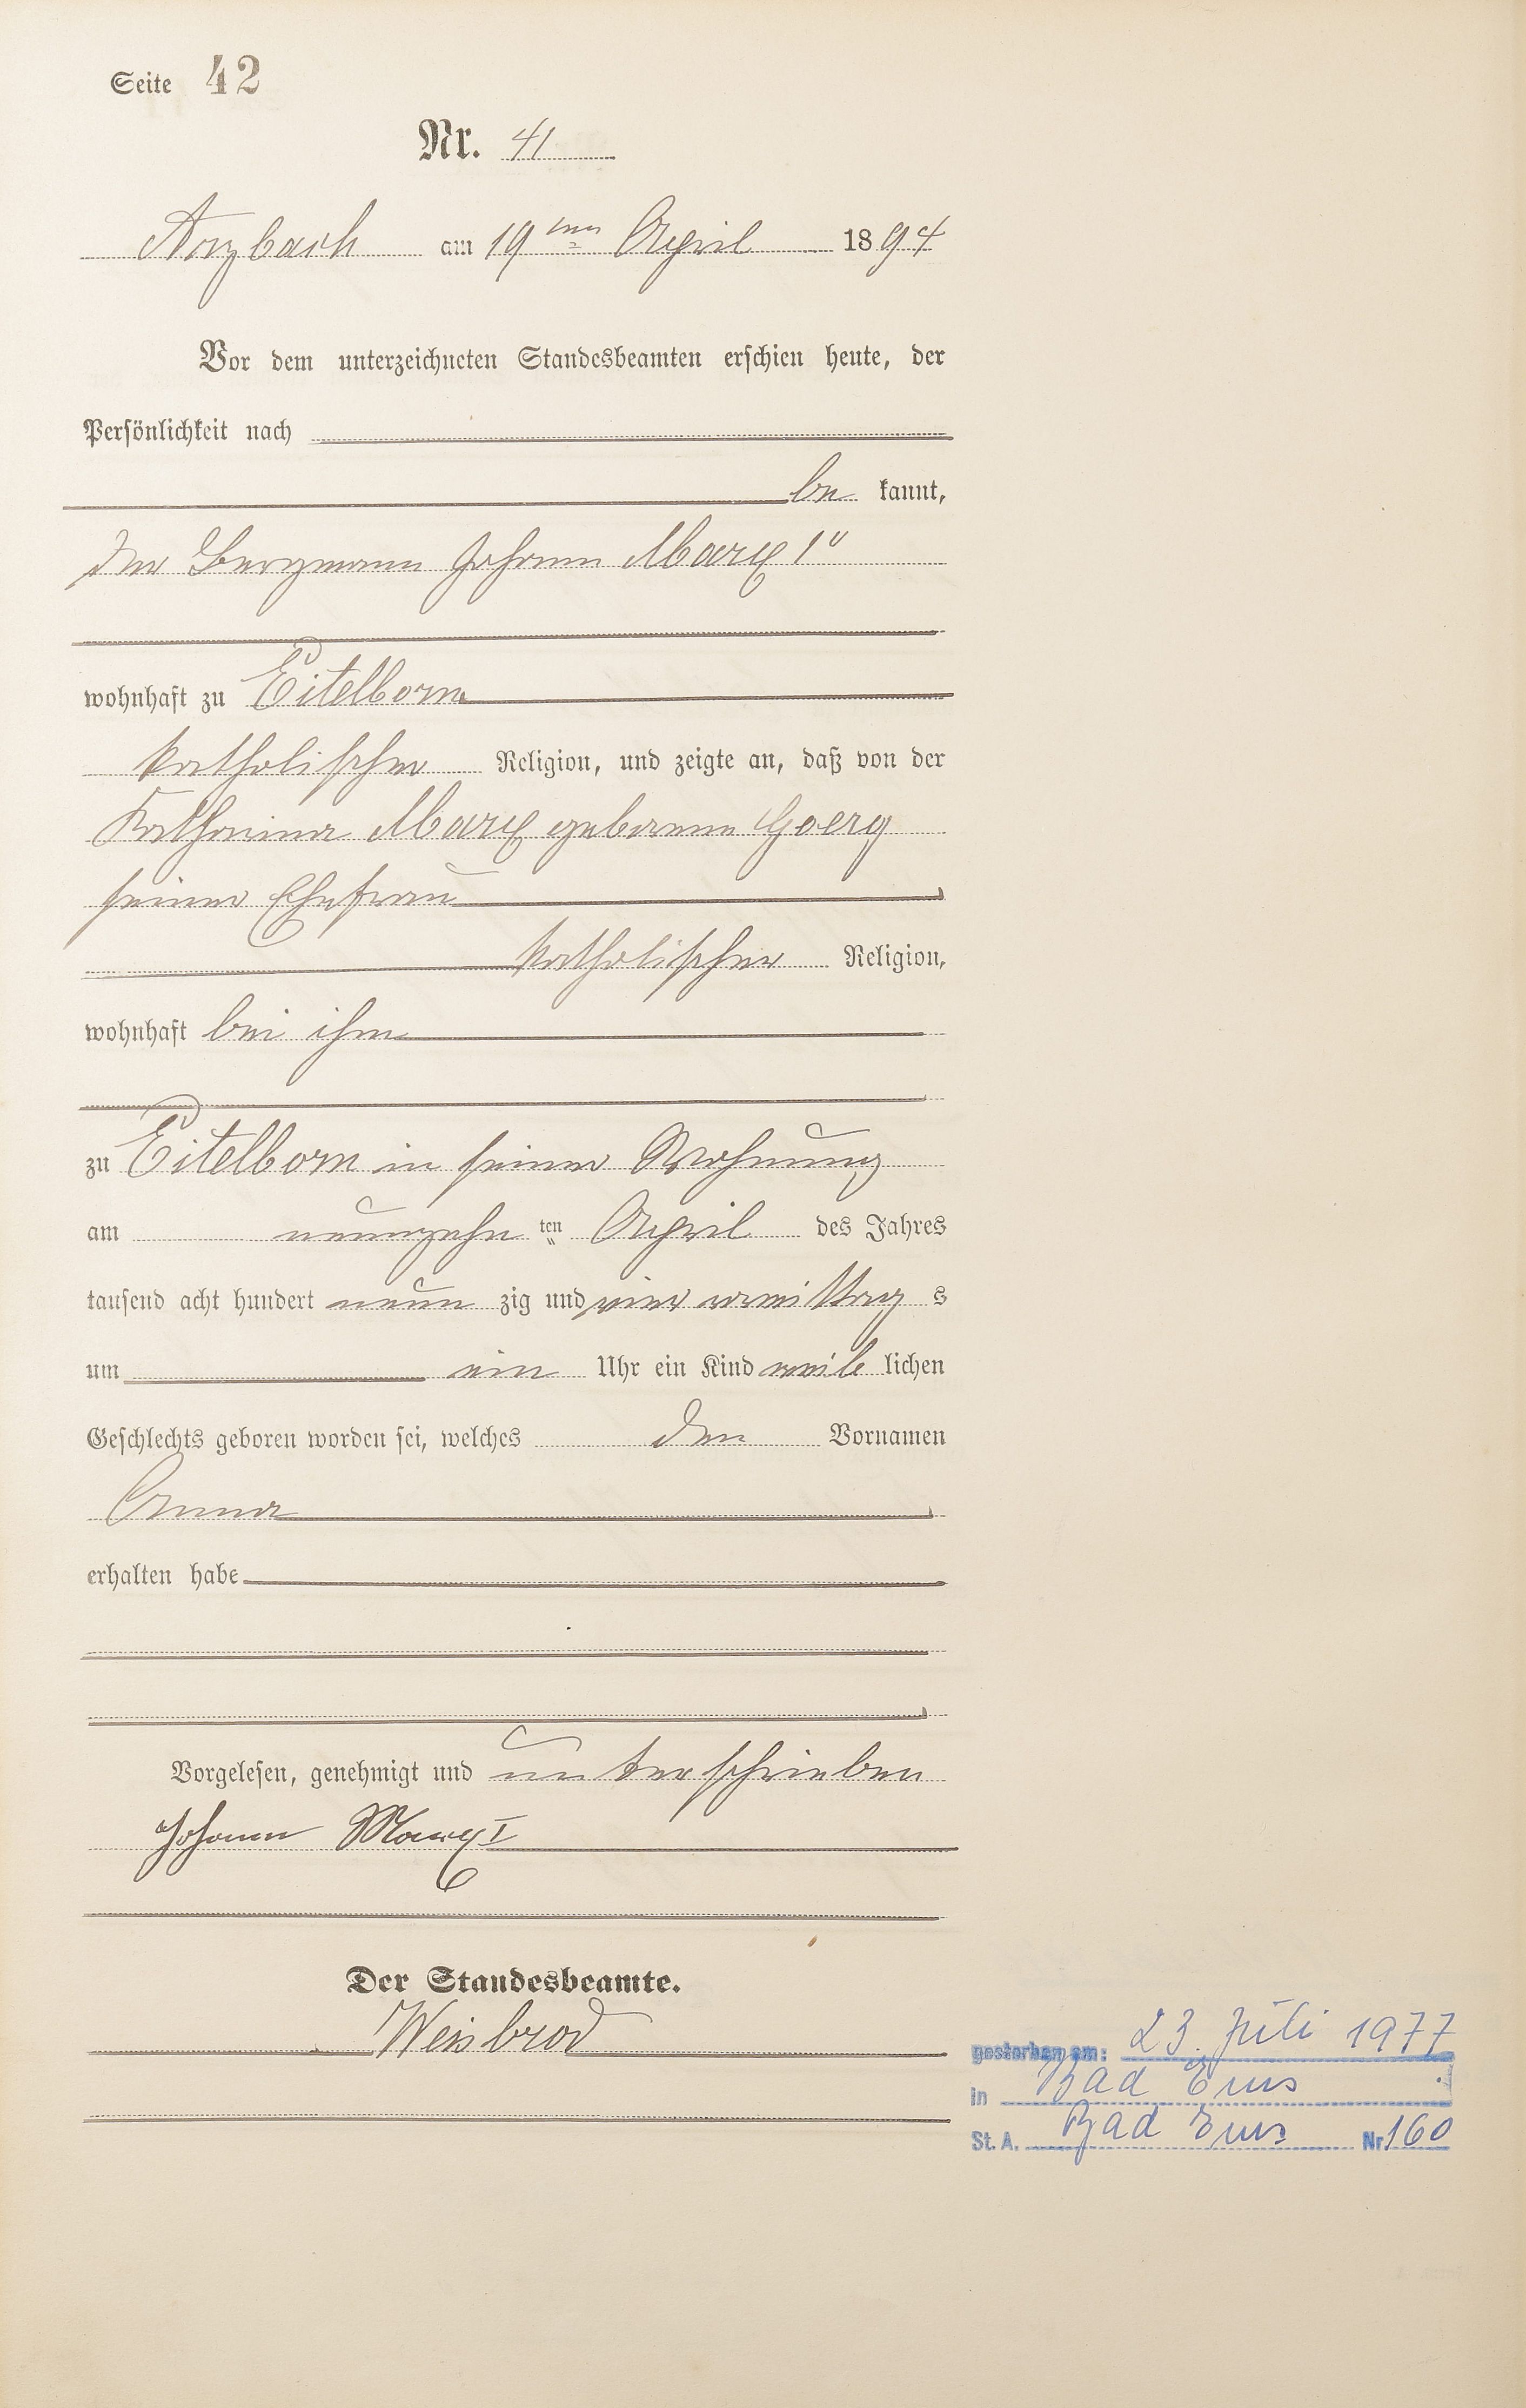 Seite 42
Nr. 41
Arzbach am 19ten April 1894
Vor dem unterzeichneten Standesbeamten erschien heute, der
Persönlichkeit nach
be kannt,
der Bergmann Johann Marx 1r
wohnhaft zu Eitelborn
katholischer Religion, und zeigte an, daß von der
Katharina Marx geborene Goerg
seiner Ehefrau
katholischer Religion,
wohnhaft bei ihm
zu Eitelborn in seiner Wohnung
am neunzehn ten April des Jahres
tausend acht hundert neun zig und vier vormittag s
um ein Uhr ein Kind weib lichen
Geschlechts geboren worden sei, welches den Vornamen
Anna
erhalten habe
Vorgelesen, genehmigt und unterschrieben
Johann Marx I
Der Standesbeamte.
Weisbrod
gestorben am: 23. Juli 1977
in Bad Ems
St. A. Bad Ems Nr. 160